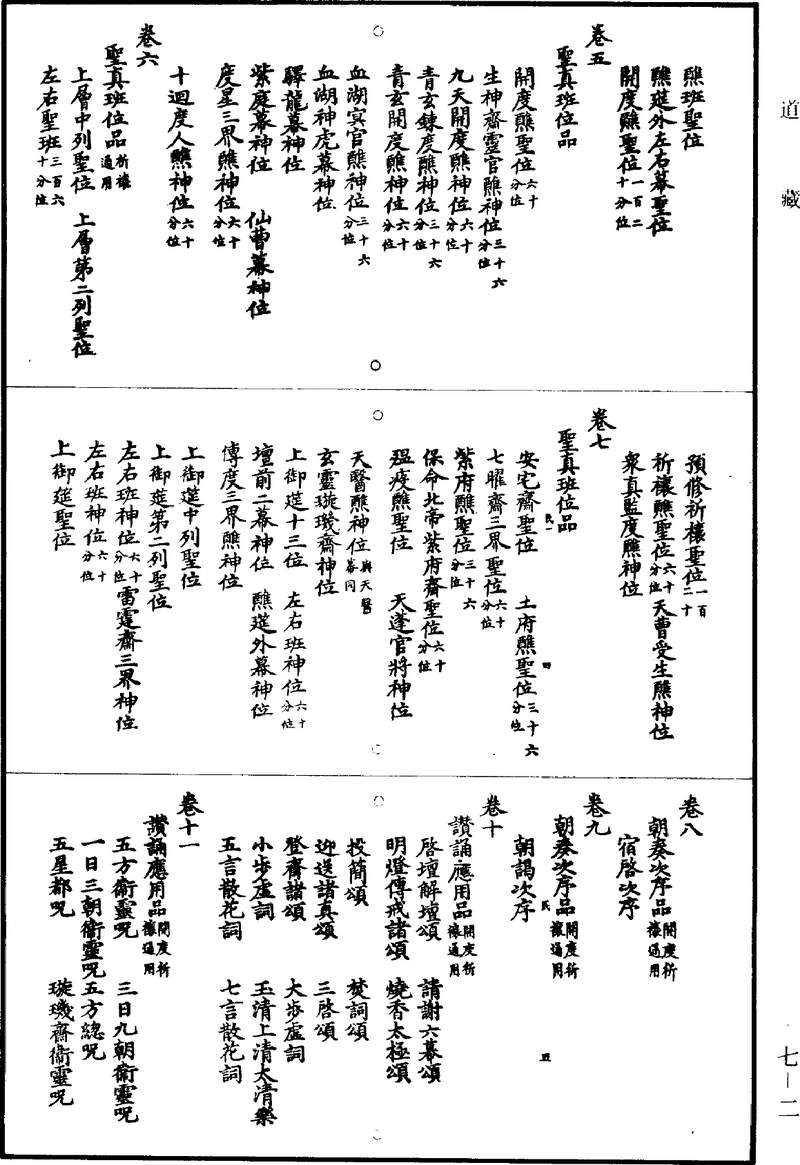 道藏
醮班聖位
醮筵外左右幕聖位
開度醮聖位一百二十分位
卷五
聖真班位品
開度醮聖位六十分位
生神齋靈官醮神位三十六分位
九天開度醮神位六十分位
青玄鍊度醮神位三十六分位
青玄開度醮神位六十分位
血湖冥官醮神位三十六分位
血湖神虎幕神位
驛龍幕神位
紫庭幕神位 仙曹幕神位
度星三界醮神位六十分位
十迴度人醮神位六十分位
卷六
聖真班位品祈禳通用
上層中列聖位 上層第二列聖位
左右聖班三百六十分位
預修祈禳聖位一百二十
祈禳醮聖位六十分位 天曹受生醮神位
衆真監度醮神位
卷七
聖真班位品
民一
安宅齋聖位 土府醮聖位三十六分位
四
七曜齋三界聖位六十分位
紫府醮聖位三十六分位
保命北帝紫府齋聖位六十分位
瘟疫醮聖位 天蓬官將神位
天醫醮神位與天醫幕同
玄靈璇璣齋神位
上御筵十三位 左右班神位六十分位
壇前二幕神位 醮筵外幕神位
傳度三界醮神位
上御筵中列聖位
上御筵第二列聖位
左右班神位六十分位 雷霆齋三界神位
左右班神位六十分位
上御筵聖位
卷八
朝奏次序品開度祈禳通用
宿啓次序
卷九
朝奏次序品開度祈禳通用
民
五
朝謁次序
卷十
讃誦應用品開度祈禳通用
啓壇解壇頌 請謝六幕頌
明燈傳戒諸頌 燒香太極頌
投簡頌 焚詞頌
迎送諸真頌 三啓頌
登齋諸頌 大步虛詞
小步虛詞 玉清上清太清樂
五言散花詞 七言散花詞
卷十一
讃誦應用品開度祈禳通用
五方衛靈呪 三日九朝衛靈呪
一日三朝衛靈呪 五方總呪
五星都呪 璇璣齋衛靈呪
七－二